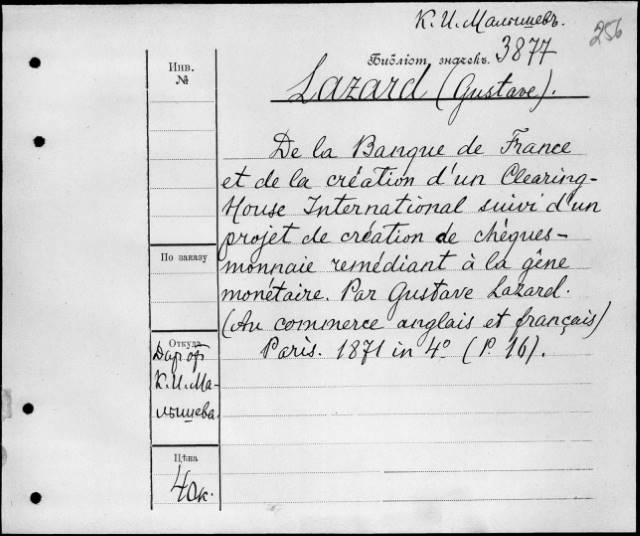 К. И. Малышевъ.
256
Библіот. значекъ. 3877
Инв.
№
Lazard (Gustave).
De la Banque de France
et de la création d'un Clearing-
House International suivi d'un
projet de création de chèques-
monnaie remédiant à la gêne
monétaire. Par Gustave Lazard.
(Au commerce anglais et français)
Paris. 1871 in 4° (P. 16).
По заказу
Откуда
Дар от
К. И. Ма-
лышева.
Цѣна
40к.